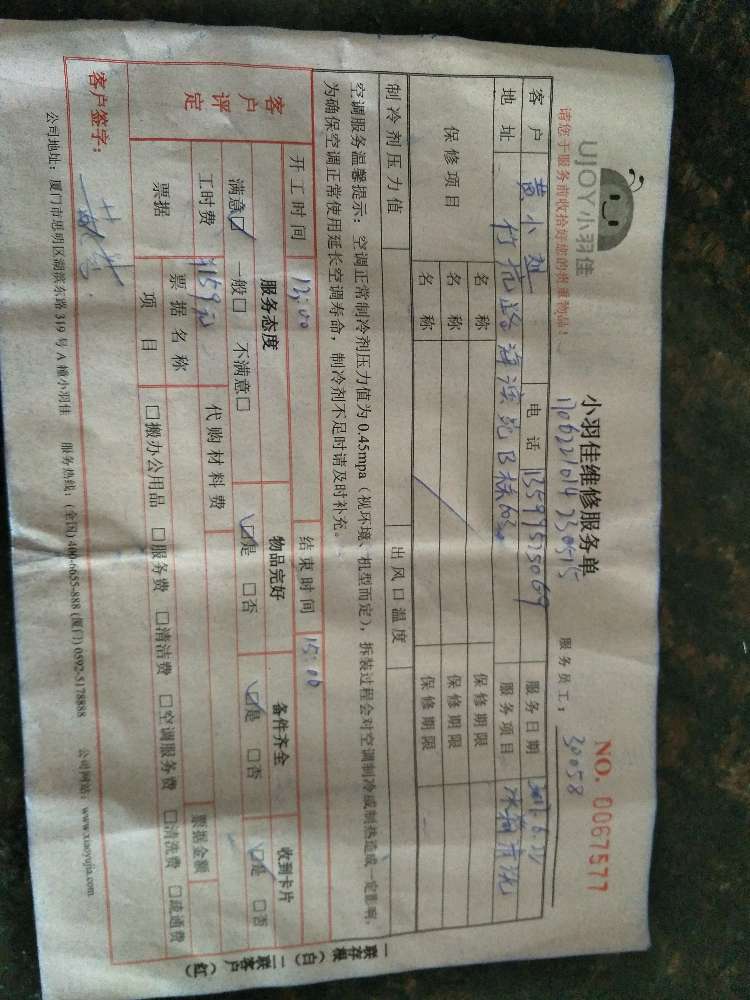 UJOY小羽佳
请您于服务前收拾好您的贵重物品！
小羽佳维修服务单
NO. 0067577
服务员工： 30058
客户 黄小 电话 服务日期
地址 海滨苑B栋 服务项目 冰箱清洗
保修项目 名称 保修期限
名称 保修期限
名称 保修期限
制冷剂压力值 出风口温度
空调服务温馨提示：空调正常制冷剂压力值为0.45mpa（视环境、机型而定），拆装过程会对空调制冷或制热造成一定影响，
为确保空调正常使用延长空调寿命，制冷剂不足时请及时补充。
开工时间 13:00 结束时间 15:00
客户评定 服务态度 物品完好 备件齐全 收到卡片
满意☑ 一般□ 不满意□ ☑是 □否 ☑是 □否 ☑是 □否
工时费 159元 代购材料费
票据 票据名称 票据金额
项目 □搬办公用品 □服务费 □清洁费 □空调服务费 □清洗费 □疏通费
客户签字：
公司地址：厦门市思明区湖滨东路319号A幢小羽佳 服务热线：(全国) 400-6655-888 (厦门) 0592-5178888 公司网站：www.xiaoyujia.com
一联存根（白） 二联客户（红）